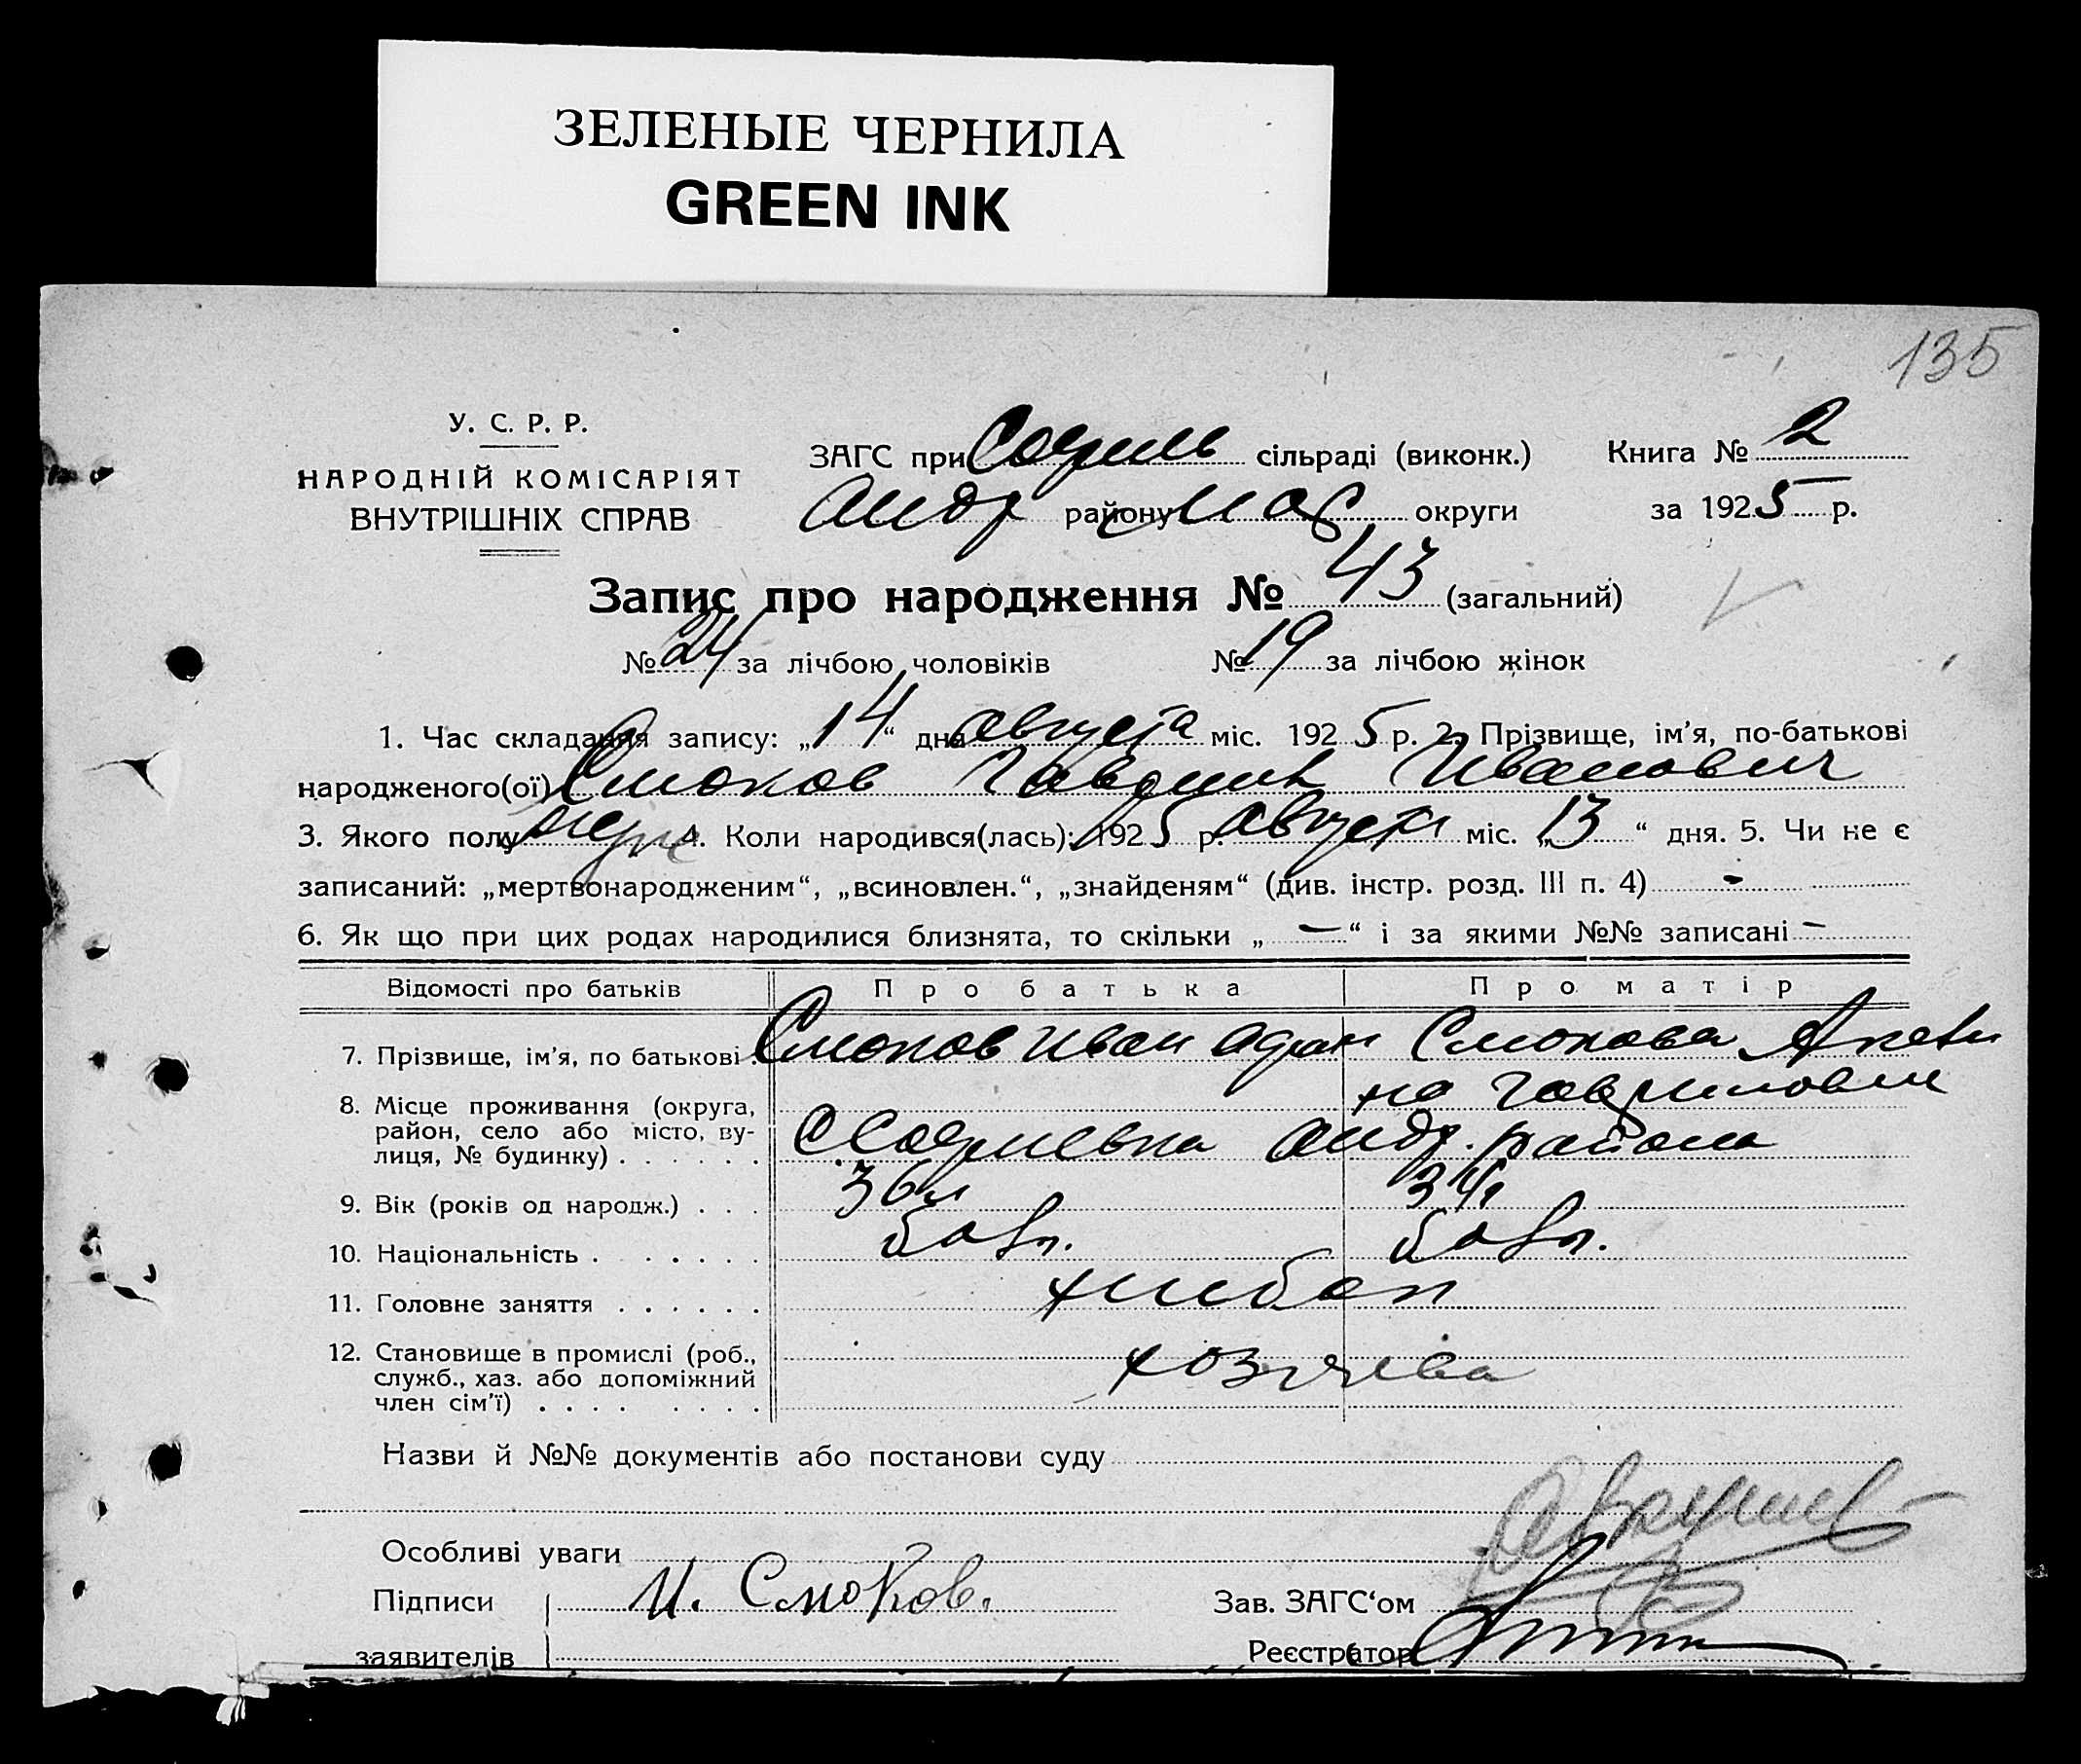 ЗЕЛЕНЫЕ ЧЕРНИЛА
GREEN INK
135
У. С. Р. Р.
НАРОДНІЙ КОМІСАРІЯТ
ВНУТРІШНІХ СПРАВ
ЗАГС при сільраді (виконк.) Книга № 2
Андр району округи за 1925 р.
Запис про народження № 43 (загальний)
№ 24 за лічбою чоловіків № 19 за лічбою жінок
1. Час складання запису: „14“ дня августа міс. 1925 р. 2. Прізвище, ім'я, по-батькові
народженого(ої) Смоков Гавриил Иванович
3. Якого полу муж 4. Коли народився(лась): 1925 р. августа міс. „13“ дня. 5. Чи не є
записаний: „мертвонародженим“, „всиновлен.“, „знайденям“ (див. інстр. розд. III п. 4) -
6. Як що при цих родах народилися близнята, то скільки „ — “ і за якими №№ записані —
Відомості про батьків Про батька Про матір
7. Прізвище, ім'я, по батькові Смоков Иван Смокова
8. Місце проживання (округа,
район, село або місто, ву-
лиця, № будинку) Андр. района
9. Вік (років од народж.) 36 л 34 л
10. Національність болг. болг.
11. Головне заняття хлебоп
12. Становище в промислі (роб.,
служб., хаз. або допоміжний
член сім'ї) хозяева
Назви й №№ документів або постанови суду
Особливі уваги
Підписи И. Смоков. Зав. ЗАГС'ом
заявителів Реєстратор